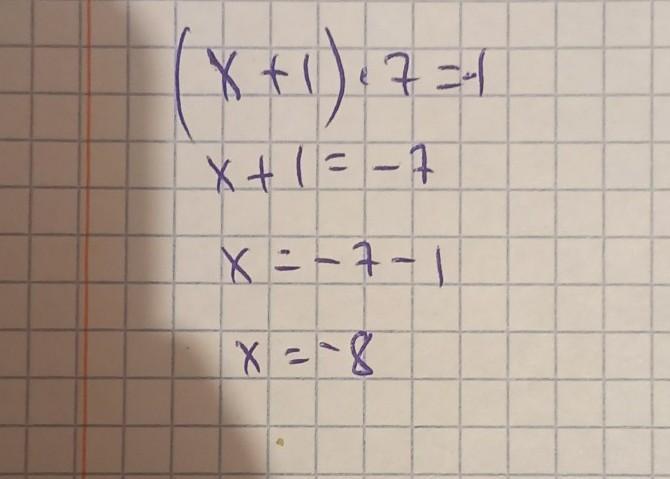 (x+1)·7=-1
x+1=-7
x=-7-1
x=-8